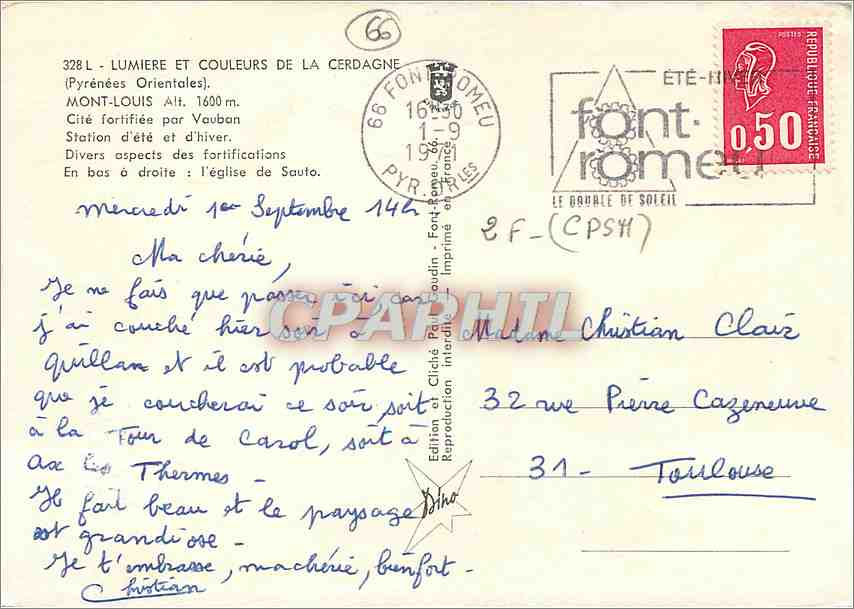 66
328 L - LUMIERE ET COULEURS DE LA CERDAGNE
(Pyrénées Orientales).
MONT-LOUIS Alt. 1600 m.
Cité fortifiée par Vauban
Station d'été et d'hiver.
Divers aspects des fortifications
En bas à droite : l'église de Sauto.
66 FONT-ROMEU
16-30
1-9
PYR. ORLES
ÉTÉ-HIVER
font-
romeu
LE DOUBLE DE SOLEIL
POSTES
REPUBLIQUE FRANÇAISE
0,50
2 F - (CPSM)
Mercredi 1er Septembre 14h
Ma chérie,
Je ne fais que passer ici, car
j'ai couché hier soir à
Quillan et il est probable
que je coucherai ce soir soit
à la Tour de Carol, soit à
Ax les Thermes -
Il fait beau et le paysage
est grandiose -
Je t'embrasse, ma chérie, bien fort -
Christian
Edition et Cliché Paul Goudin - Font-Romeu. 66.
Reproduction interdite - Imprimé en France
Dino
Madame Christian Clair
32 rue Pierre Cazeneuve
31 - Toulouse
CPAPHIL